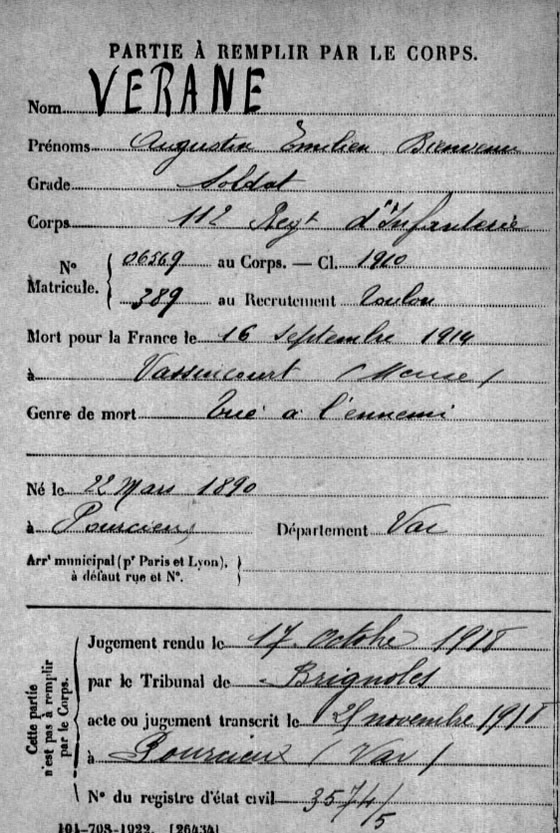 PARTIE À REMPLIR PAR LE CORPS.
Nom VERANE
Prénoms Augustin Emilien Bienvenu
Grade Soldat
Corps 112 Regt d'Infanterie
N° Matricule. 06569 au Corps. — Cl. 1910
389 au Recrutement Toulon
Mort pour la France le 16 Septembre 1914
à Vassincourt (Meuse)
Genre de mort Tué à l'ennemi
Né le 22 Mars 1890
à Pourcieux Département Var
Arrt municipal (pr Paris et Lyon),
à défaut rue et N°.
Cette partie
n'est pas à remplir
par le Corps.
Jugement rendu le 17 Octobre 1918
par le Tribunal de Brignoles
acte ou jugement transcrit le novembre 1918
à Pourcieux (Var)
N° du registre d'état civil 3574/5
101-708-1922. [26434]